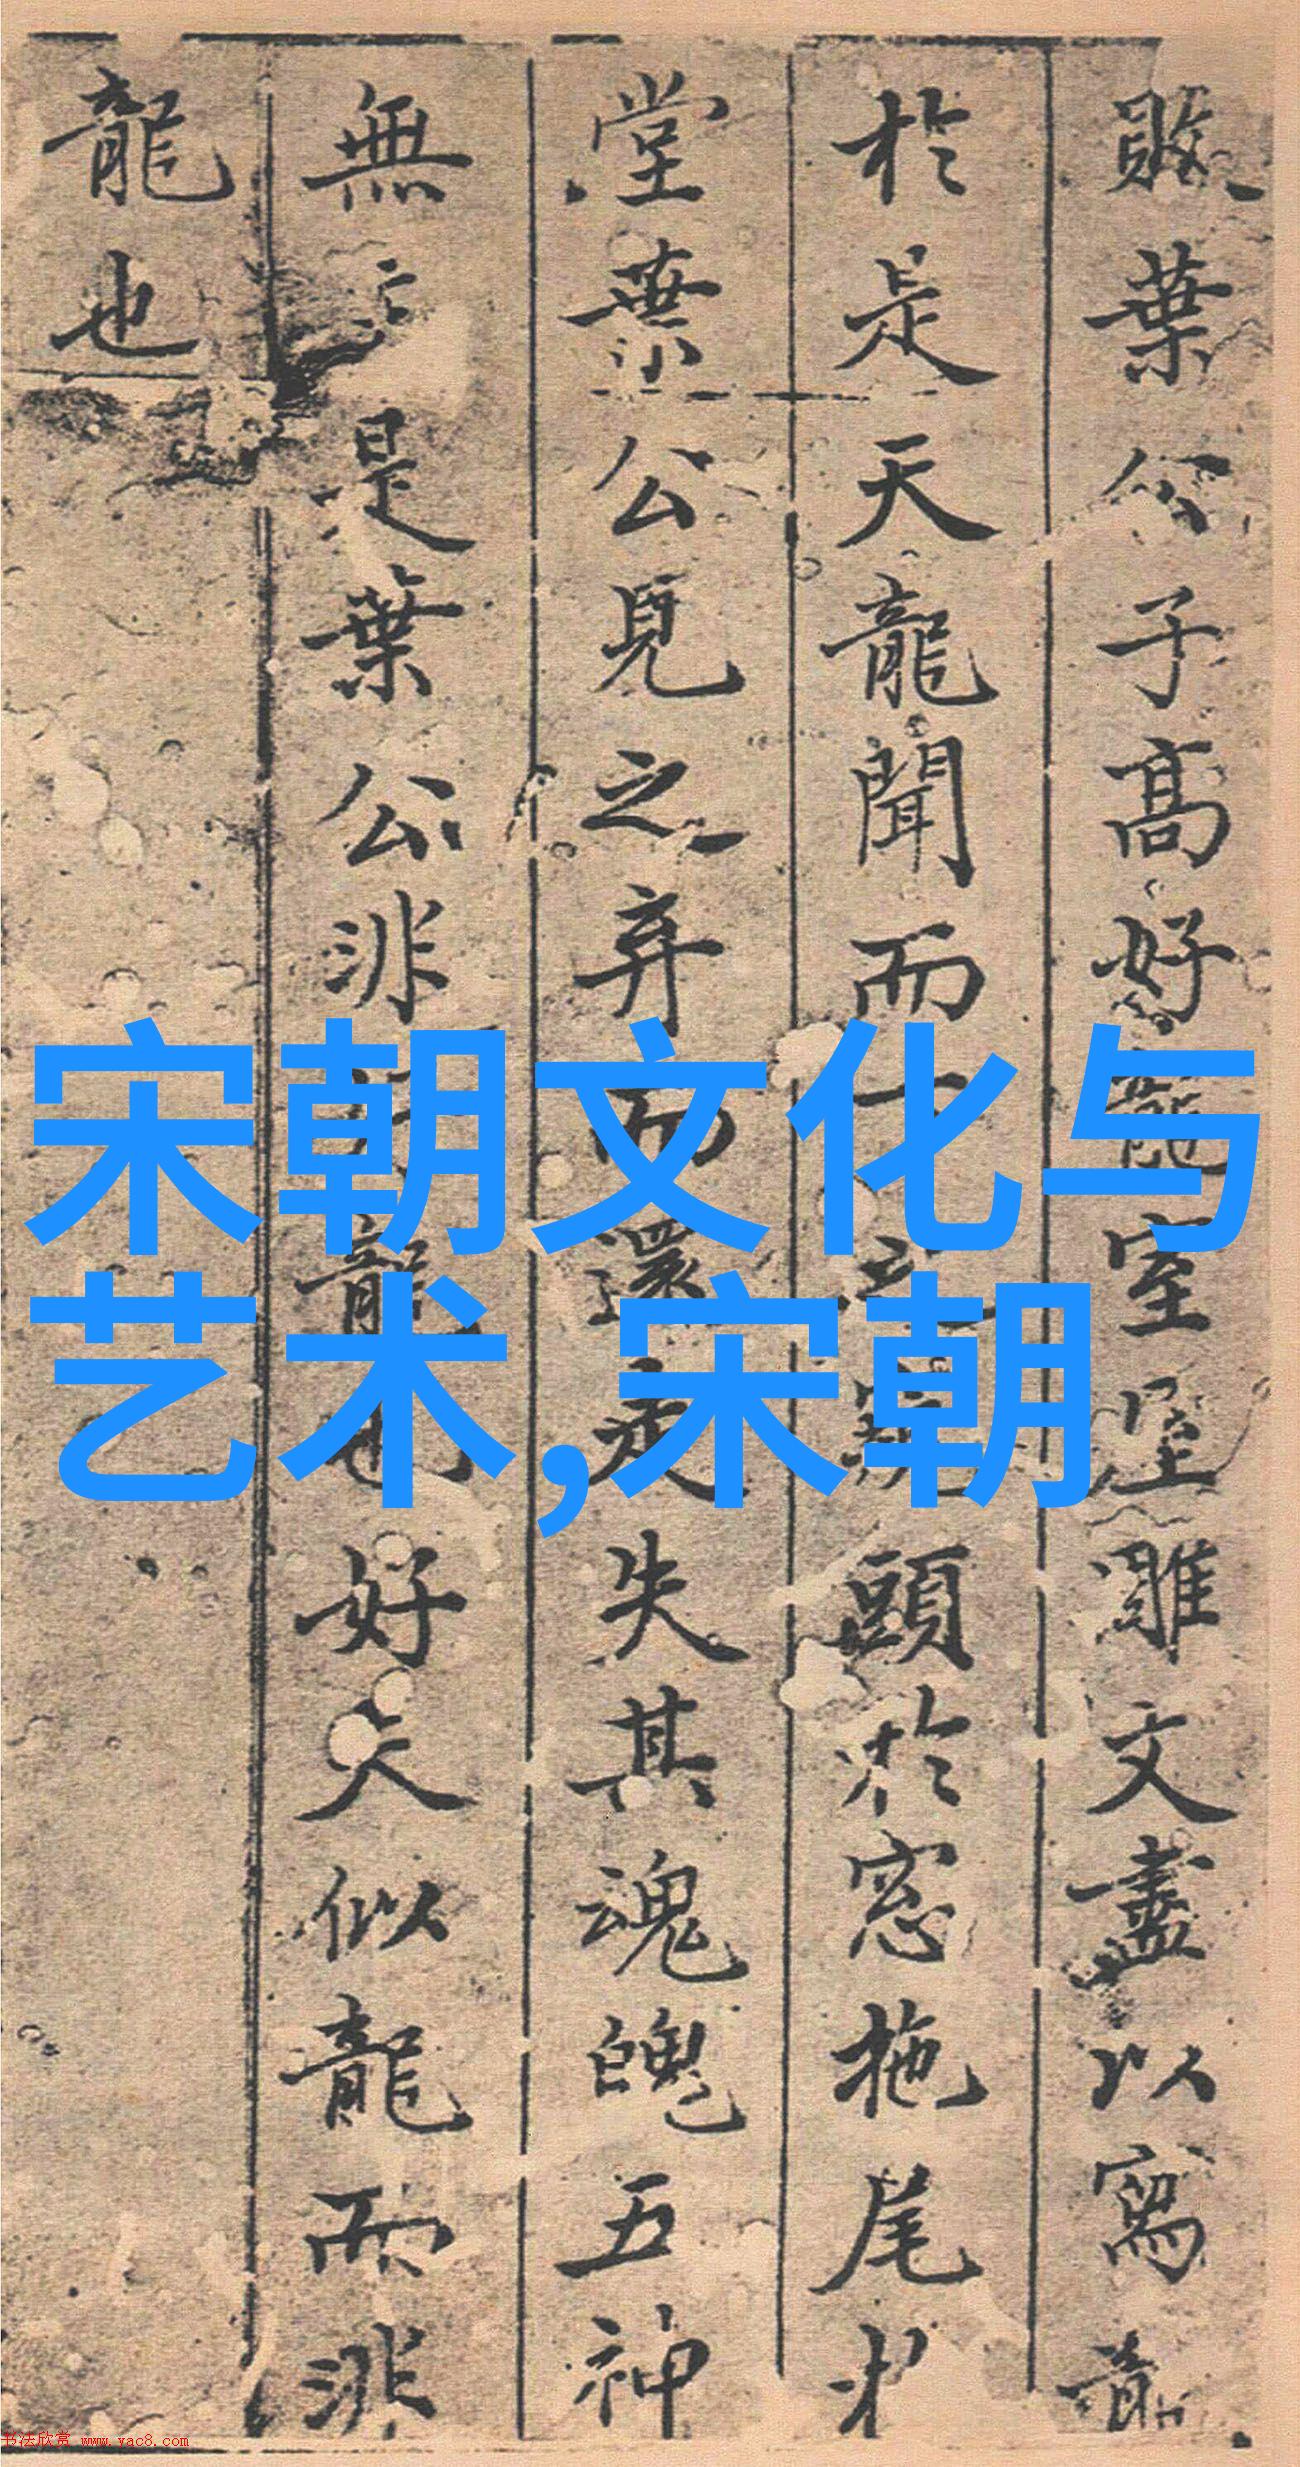 敗葉公子髙好龍室屋雕文盡以寫龍
於是天龍聞而下之窺頭於窓拖尾於
堂葉公見之弃而還走失其魂魄五神
無主是葉公非好龍也好夫似龍而非
龍也
宋朝文化与
艺术,宋朝
书法欣赏 www.yac8.com